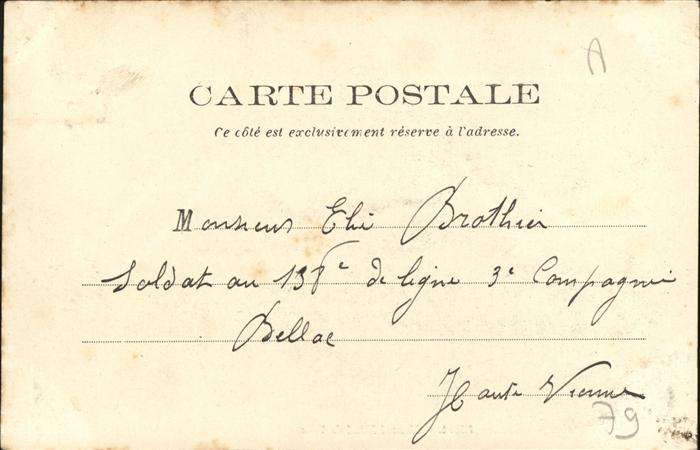 A
CARTE POSTALE
Ce côté est exclusivement réservé à l'adresse.
Monsieur Elie Brothier
Soldat au 138e de ligne 3e Compagnie
Bellac
Haute Vienne
79